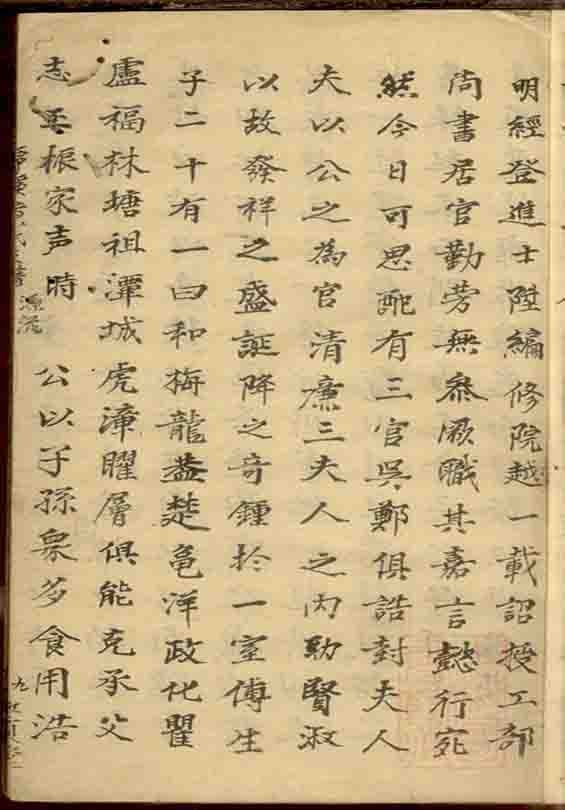 明經登進士陞編修院越一載詔授工部
尚書居官勤勞無忝厥職其嘉言懿行宛
然今日可思配有三官吳鄭俱誥封夫人
夫以公之為官清廉三夫人之內助賢淑
以故發祥之盛誕降之奇鍾扵一室傅生
子二十有一曰和梅龍盖楚黾洋政化瞿
盧福林塘祖潭城虎漳曜層俱能克承父
志丕振家声時 公以子孫衆多食用浩
源流